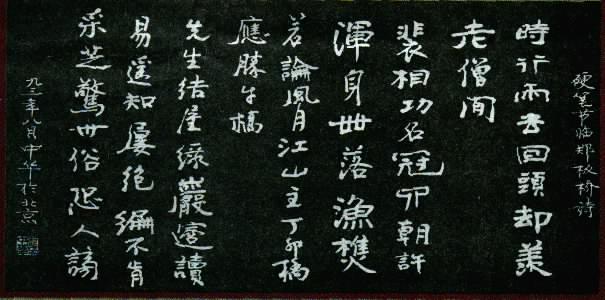 硬笔节临郑板桥诗
時行雨去回頭却羨
老僧閒
裴相功名冠四朝許
渾身世落漁樵
若論風月江山主丁卯橋
應勝午橋
先生结屋绿巖邊讀
易遥知屡绝编不肯
采芝驚世俗恐人謗
九三年八月中华于北京